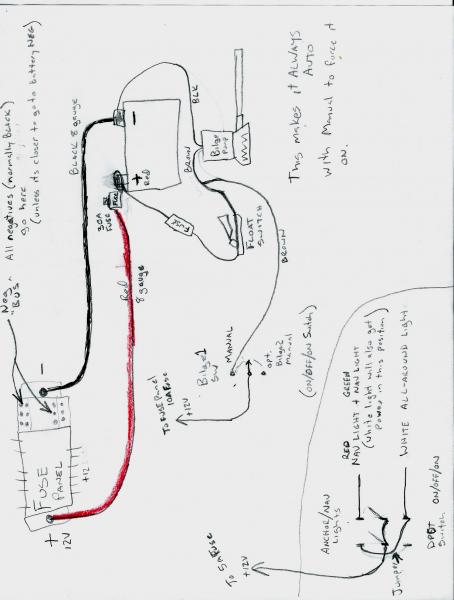 All negatives (normally BLACK)
go here
(unless its closer to goto battery NEG)
Neg
"BUS"
BLACK 8 gauge
-
+
Red
FUSE
30A
FUSE
Red
8 gauge
BLK
Bilge
Pump
BROWN
FUSE
FLOAT
SWITCH
BROWN
This makes it ALWAYS
AUTO
with Manual to force it
ON.
-
FUSE
PANEL
+12
+
12V
Bilge1
SW
MANUAL
opt.
Bilge2
Manual
To FUSE Panel
10A Fuse
+12V
(ON/OFF/ON Switch)
RED GREEN
NAV LIGHT + NAV LIGHT
(white light will also get
Power in this position)
WHITE ALL-AROUND Light
ANCHOR/NAV
Lights
To 5A Fuse
+12V
Jumper
DPDT ON/OFF/ON
Switch